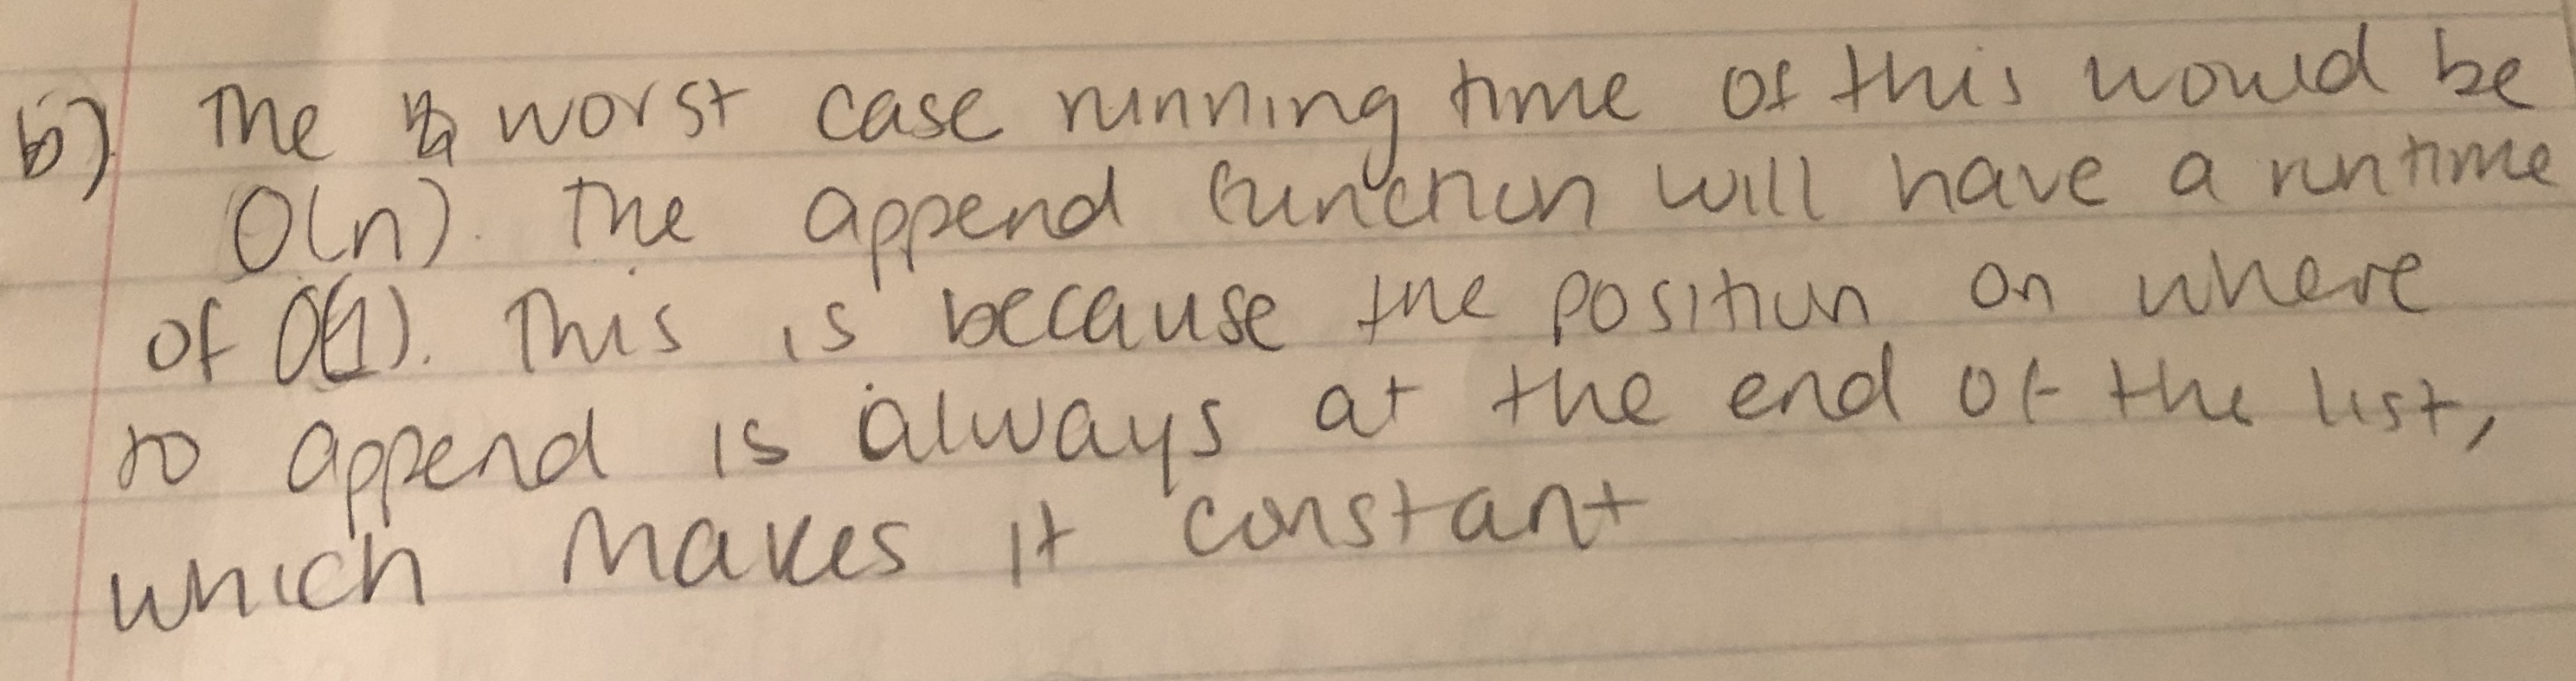 b) The worst case running time of this would be
O(n). The append function will have a runtime
of O(1). This is because the position on where
to append is always at the end of the list,
which makes it constant